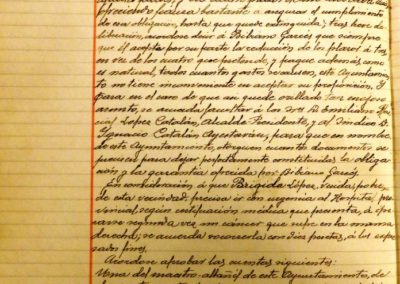 ofreciendo fianza bastante á asegurar el cumplimiento
de esa obligación, hasta que quede extinguida; tras breve de-
liberación, acordose decir á Bibiano Garcés que siempre
que él acepte por su parte la reducción de los plazos á tres
en vez de los cuatro que pretende, y pague además como
es natural, todos cuantos gastos se causen, este Ayuntamien-
to no tiene inconveniente en aceptar su proposición. Y
para en el caso de que así quede ultimado tan enojoso
asunto, se acuerda facultar á los Sres. D. Emiliano
López Catalán, Alcalde Presidente, y al Síndico D.
Ignacio Catalán Ayestarán, para que en nombre
de este Ayuntamiento, otorguen cuantos documentos se
precisen para dejar perfectamente constituidas la obliga-
ción y la garantía ofrecida por Bibiano Garcés.
En consideración á que Brígida López, viuda, pobre,
de esta vecindad, precisa ir con urgencia al Hospital pro-
vincial, según certificación médica que presenta, á ope-
rarse segunda vez un cáncer que sufre en la mama
derecha; se acuerda socorrerla con diez pesetas, á los expre-
sados fines.
Acordose aprobar las cuentas siguientes:
Una del maestro albañil de este Ayuntamiento, de